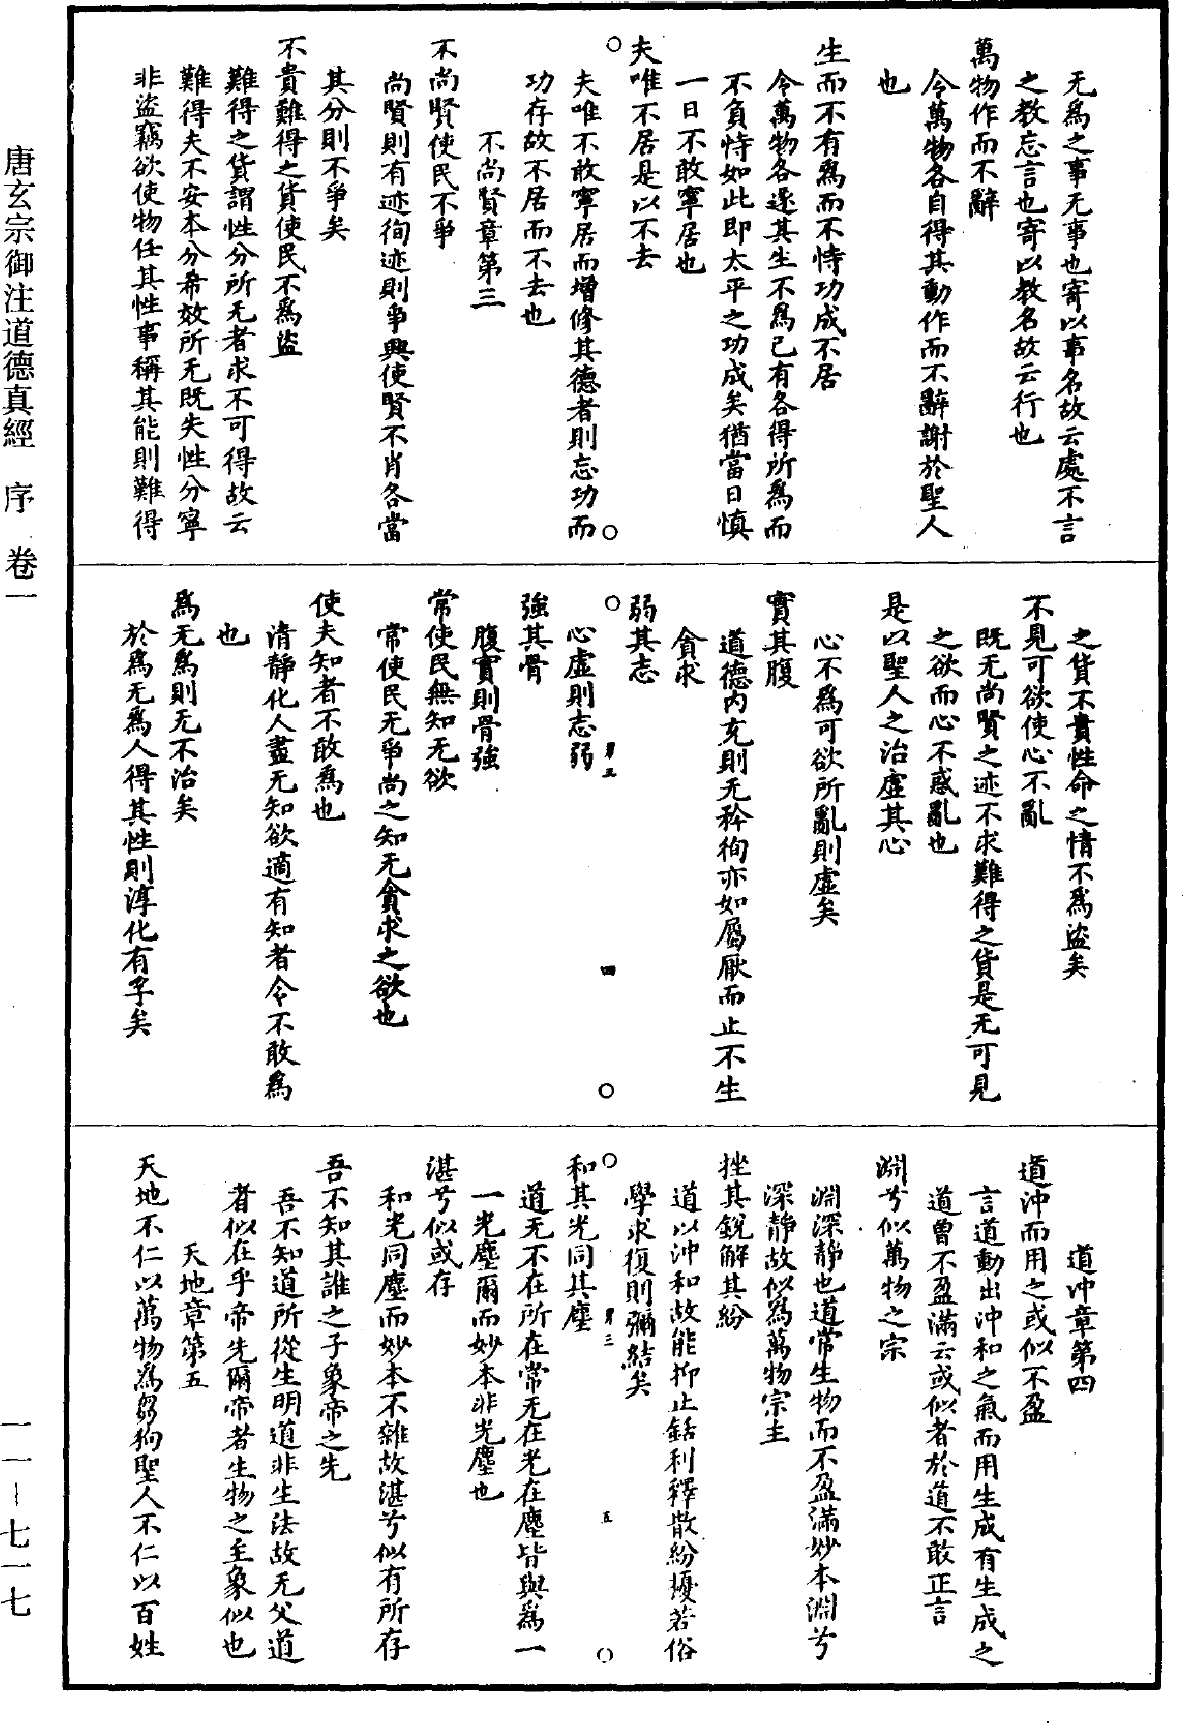 无爲之事无事也寄以事名故云處不言
之教忘言也寄以教名故云行也
萬物作而不辭
令萬物各自得其動作而不辭謝於聖人
也
生而不有爲而不恃功成不居
令萬物各遂其生不爲己有各得所爲而
不負恃如此即太平之功成矣猶當日慎
一日不敢寧居也
夫唯不居是以不去
夫唯不敢寧居而增修其德者則忘功而
功存故不居而不去也
不尚賢章第三
不尚賢使民不爭
尚賢則有迹徇迹則爭興使賢不肖各當
其分則不爭矣
不貴難得之貨使民不爲盜
難得之貨謂性分所无者求不可得故云
難得夫不安本分希效所无既失性分寧
非盜竊欲使物任其性事稱其能則難得
之貨不貴性命之情不爲盜矣
不見可欲使心不亂
既无尚賢之迹不求難得之貨是无可見
之欲而心不惑亂也
是以聖人之治虛其心
心不爲可欲所亂則虛矣
實其腹
道德内充則无矜徇亦如屬厭而止不生
貪求
弱其志
四
心虛則志弱
強其骨
腹實則骨強
常使民無知无欲
常使民无爭尚之知无貪求之欲也
使夫知者不敢爲也
清靜化人盡无知欲適有知者令不敢爲
也
爲无爲則无不治矣
於爲无爲人得其性則淳化有孚矣
道沖章第四
道沖而用之或似不盈
言道動出沖和之氣而用生成有生成之
道曾不盈滿云或似者於道不敢正言
淵兮似萬物之宗
淵深靜也道常生物而不盈滿妙本淵兮
深靜故似爲萬物宗主
挫其銳解其紛
道以沖和故能抑止銛利釋散紛擾若俗
學求復則彌結矣
五
和其光同其塵
道无不在所在常无在光在塵皆與爲一
一光塵爾而妙本非光塵也
湛兮似或存
和光同塵而妙本不雜故湛兮似有所存
吾不知其誰之子象帝之先
吾不知道所從生明道非生法故无父道
者似在乎帝先爾帝者生物之主象似也
天地章第五
天地不仁以萬物爲芻狗聖人不仁以百姓
唐玄宗御注道德真經　序　卷一
一一—七一七